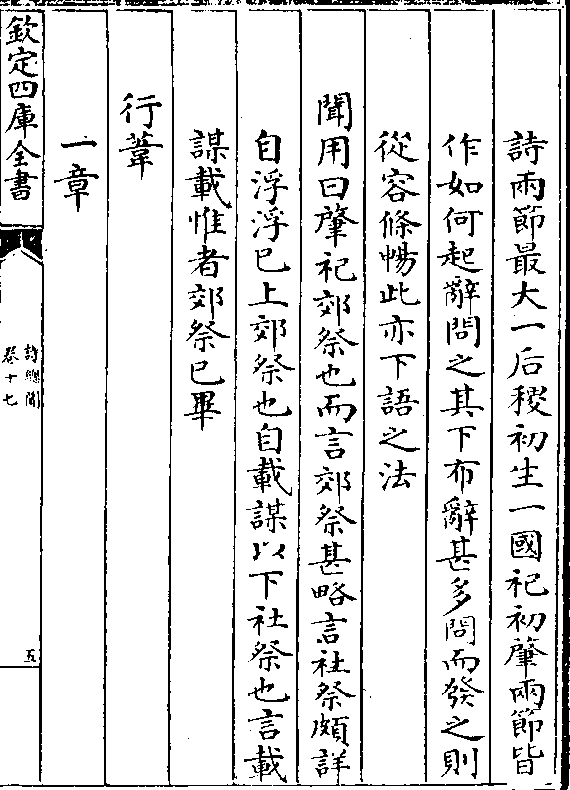 詩兩節最大一后稷初生一國祀初肇兩節皆
作如何起辭問之其下布辭甚多問而發之則
從容條暢此亦下語之法
聞用曰肇祀郊祭也而言郊祭甚略言社祭頗詳
自浮浮已上郊祭也自載謀以下社祭也言載
謀載惟者郊祭已畢
行葦
一章
欽定四庫全書
詩總聞
卷十七
五